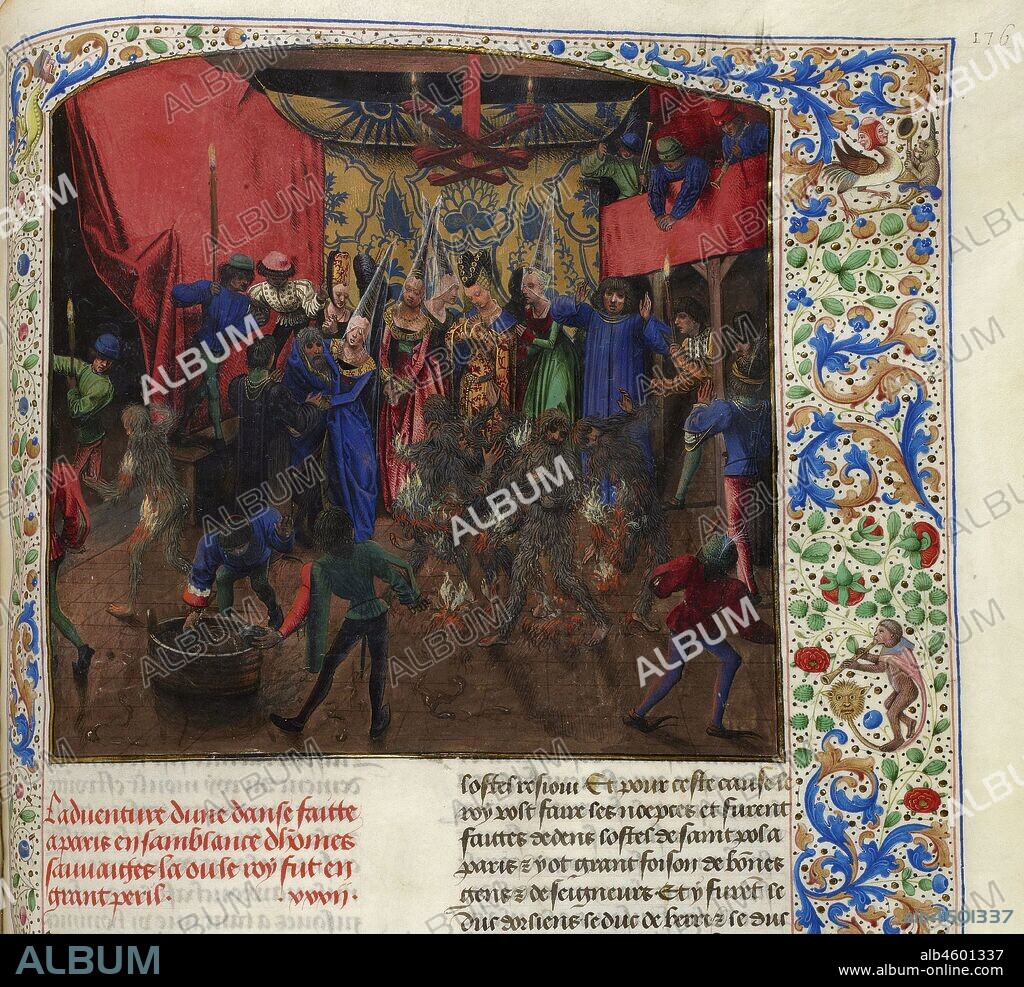 176
L'adventure dune danse faitte
a paris en samblance dhõmes
sauvaiges la ou le roy fut en
grant peril. xxxii.
lostel resiouy Et pour ceste cause le
roy volt faire les noepces et furent
faittes dedens lostel de saint pol a
paris & y ot grant foison de bõnes
gens & de seigneurs Et y furẽt le
Duc dorliens le duc de berre & le duc
ALBUM
alb4601337
alb4601337
www.album-online.com